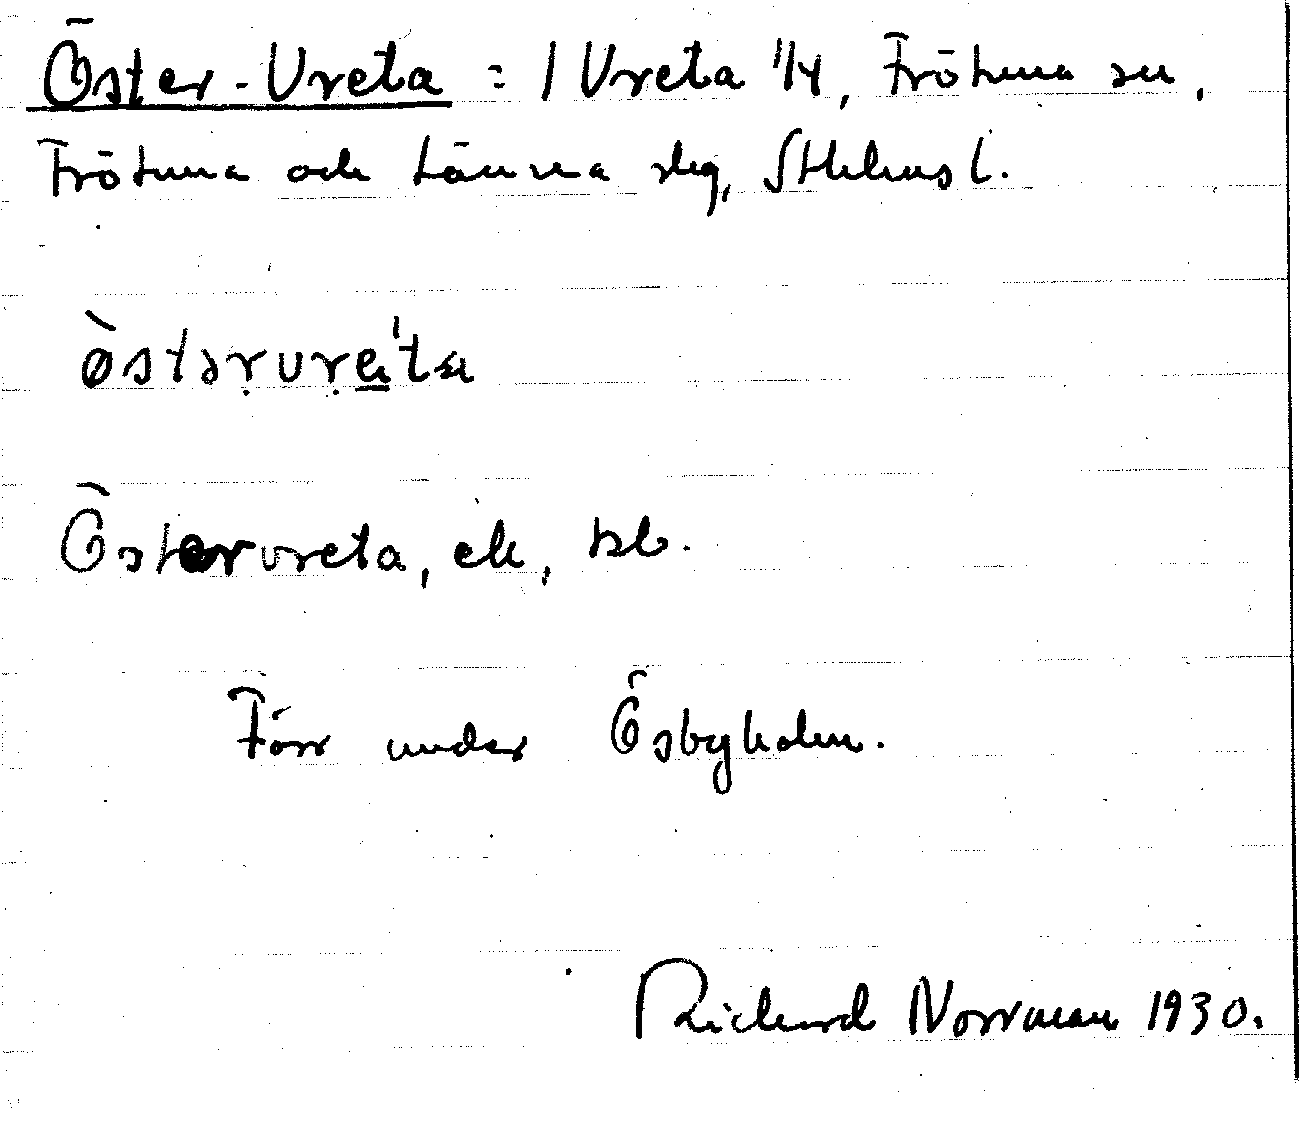 Öster-Vreta = 1 Vreta 1/4, Frötuna sn,
Frötuna och Länna slg, Sthlms l.
ø̀stərvre̲'ta
Östervreta, ek, tsb.
Förr under Ösbyholm.
Richard Norrman 1930.